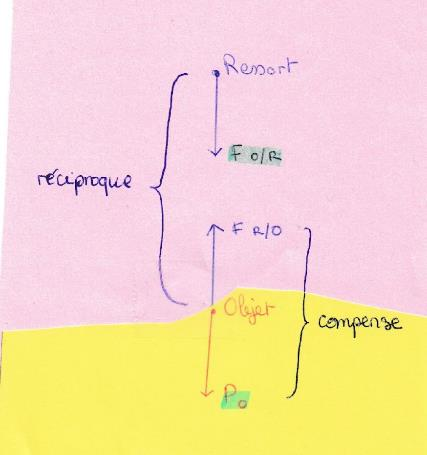 Ressort
F O/R
réciproque
F R/O
Objet
compense
Po